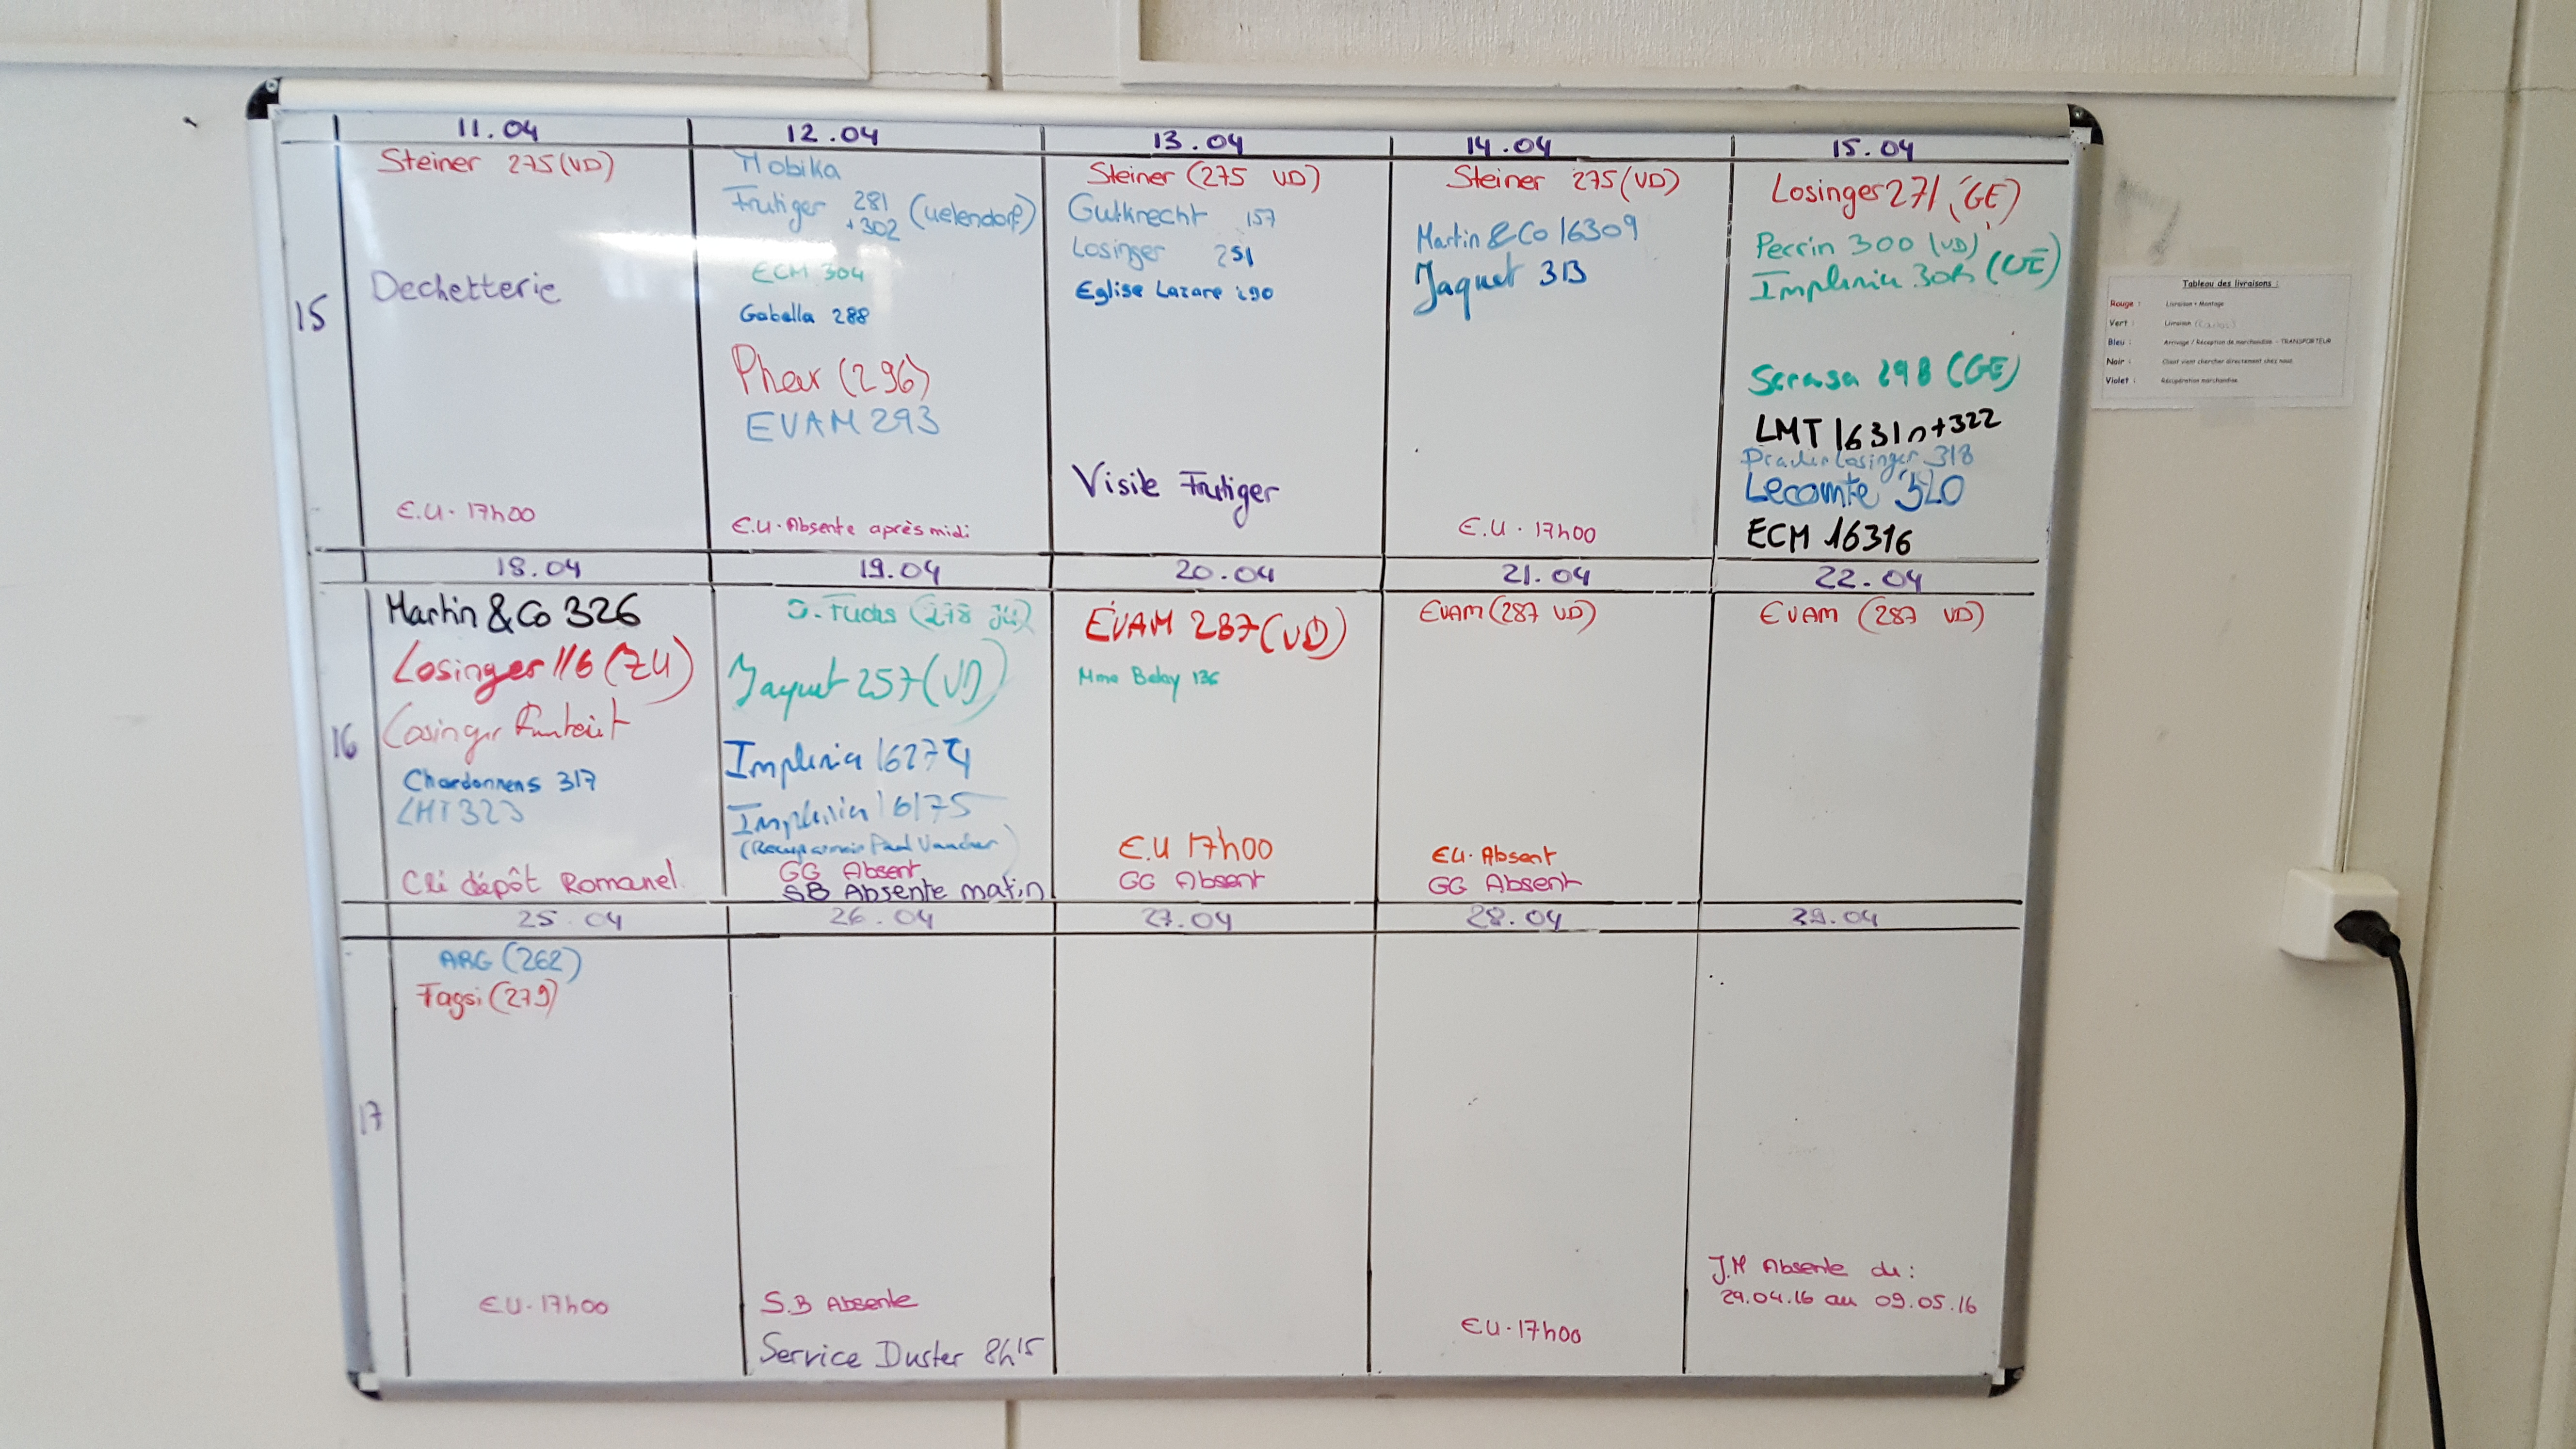 11.04
12.04
13.04
14.04
15.04
15
Steiner 275 (VD)
Dechetterie
E.U. 17h00
Mobika
Frutiger 281 + 302 (Uelendorf)
ECM 304
Gabella 288
Phar (296)
EVAM 293
E.U. Absente après midi
Steiner (275 VD)
Gutknecht 157
Losinger 251
Eglise Lazare 290
Visite Frutiger
Steiner 275 (VD)
Martin & Co 16309
Jaquet 313
E.U. 17h00
Losinger 271 (GE)
Perrin 300 (VD)
Implenia 308 (GE)
Scrasa 298 (GE)
LMT 16310+322
Losinger 318
Lecomte 320
ECM 16316
18.04
19.04
20.04
21.04
22.04
16
Martin & Co 326
Losinger 116 (ZU)
Losinger
Chardonnens 317
LMT 323
Clé dépôt Romanel
S. Fuchs (278 JU)
Jaquet 257 (VD)
Implenia 16274
Implenia 16175
Paul Vaucher
GG Absent
SB Absente matin
EVAM 287 (VD)
Mme Belay 136
E.U 17h00
GG Absent
EVAM (287 VD)
EU. Absent
GG Absent
EVAM (287 VD)
25.04
26.04
27.04
28.04
29.04
17
ARG (262)
Fagsi (279)
EU. 17h00
S.B Absente
Service Duster 8h15
EU. 17h00
J.M Absente du :
29.04.16 au 09.05.16
Tableau des livraisons :
Rouge : Livraison + Montage
Vert : Livraison (Carlos)
Bleu : Arrivage / Réception de marchandise - TRANSPORTEUR
Noir : Client vient chercher directement chez nous
Violet : Récupération marchandise